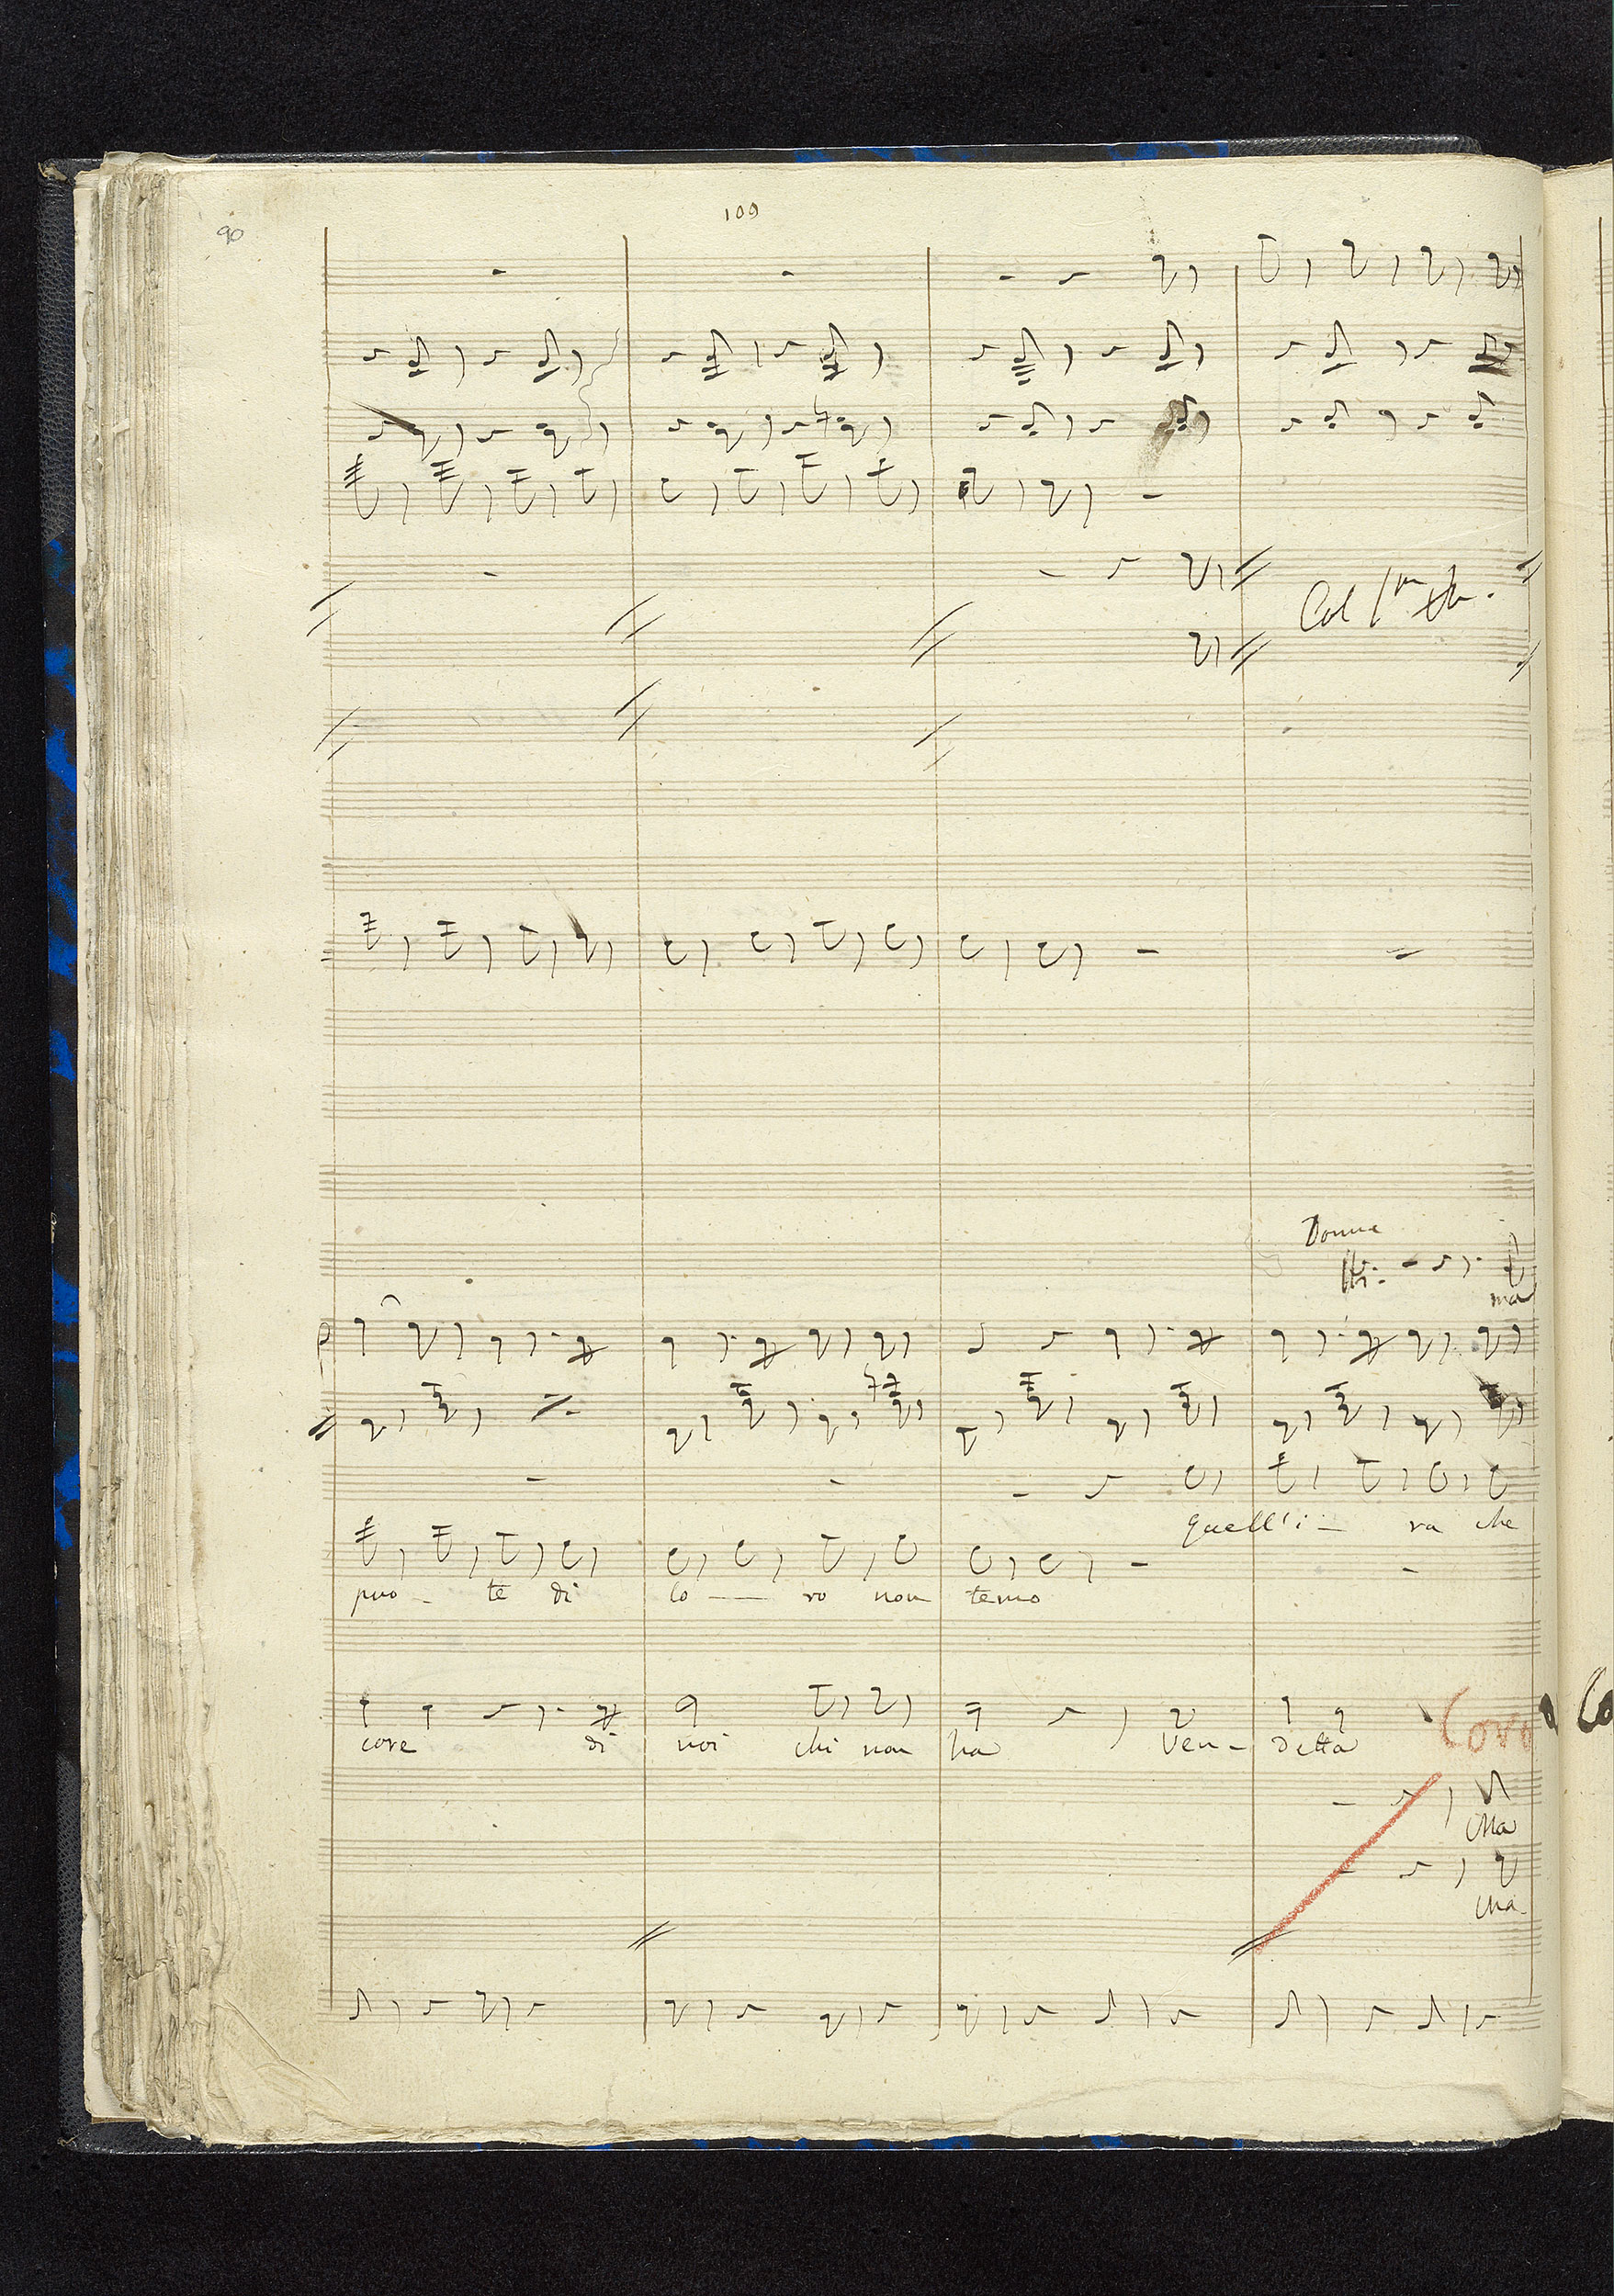 109
90
Col 1mo
Donne
ma
quell'i - ra che
puo - te di lo - ro non temo
Coro
Co
core di noi chi non ha Ven - detta
Ma
Ma